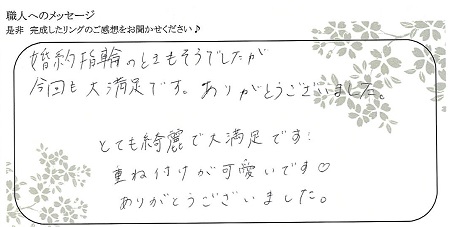 職人へのメッセージ
是非 完成したリングのご感想をお聞かせください♪
婚約指輪のときもそうでしたが
今回も大満足です。ありがとうございました。
とても綺麗で大満足です!
重ね付けが可愛いです♡
ありがとうございました。